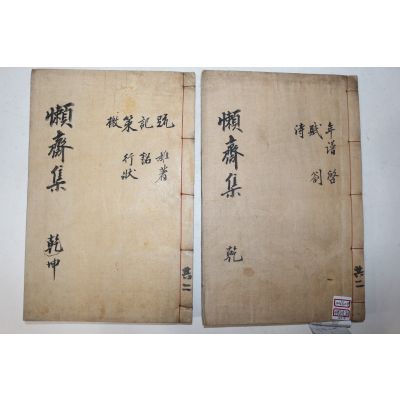 共二
年譜 啓
賦 劄
詩
懶齋集 乾
共二
疏 雜著
記 銘
策 行狀
檄
懶齋集 乾坤